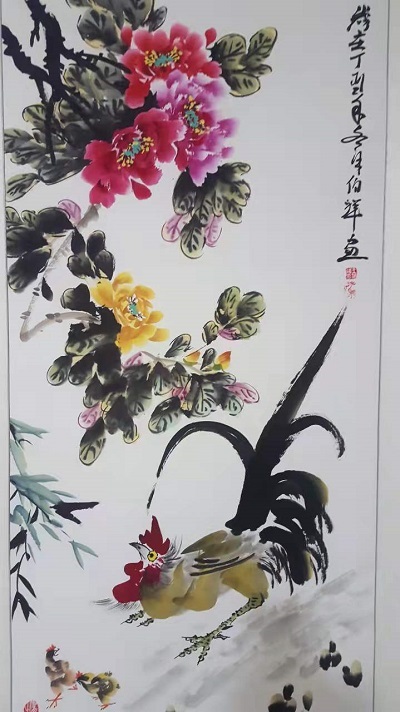 歲在丁酉年冬月伯祥畫